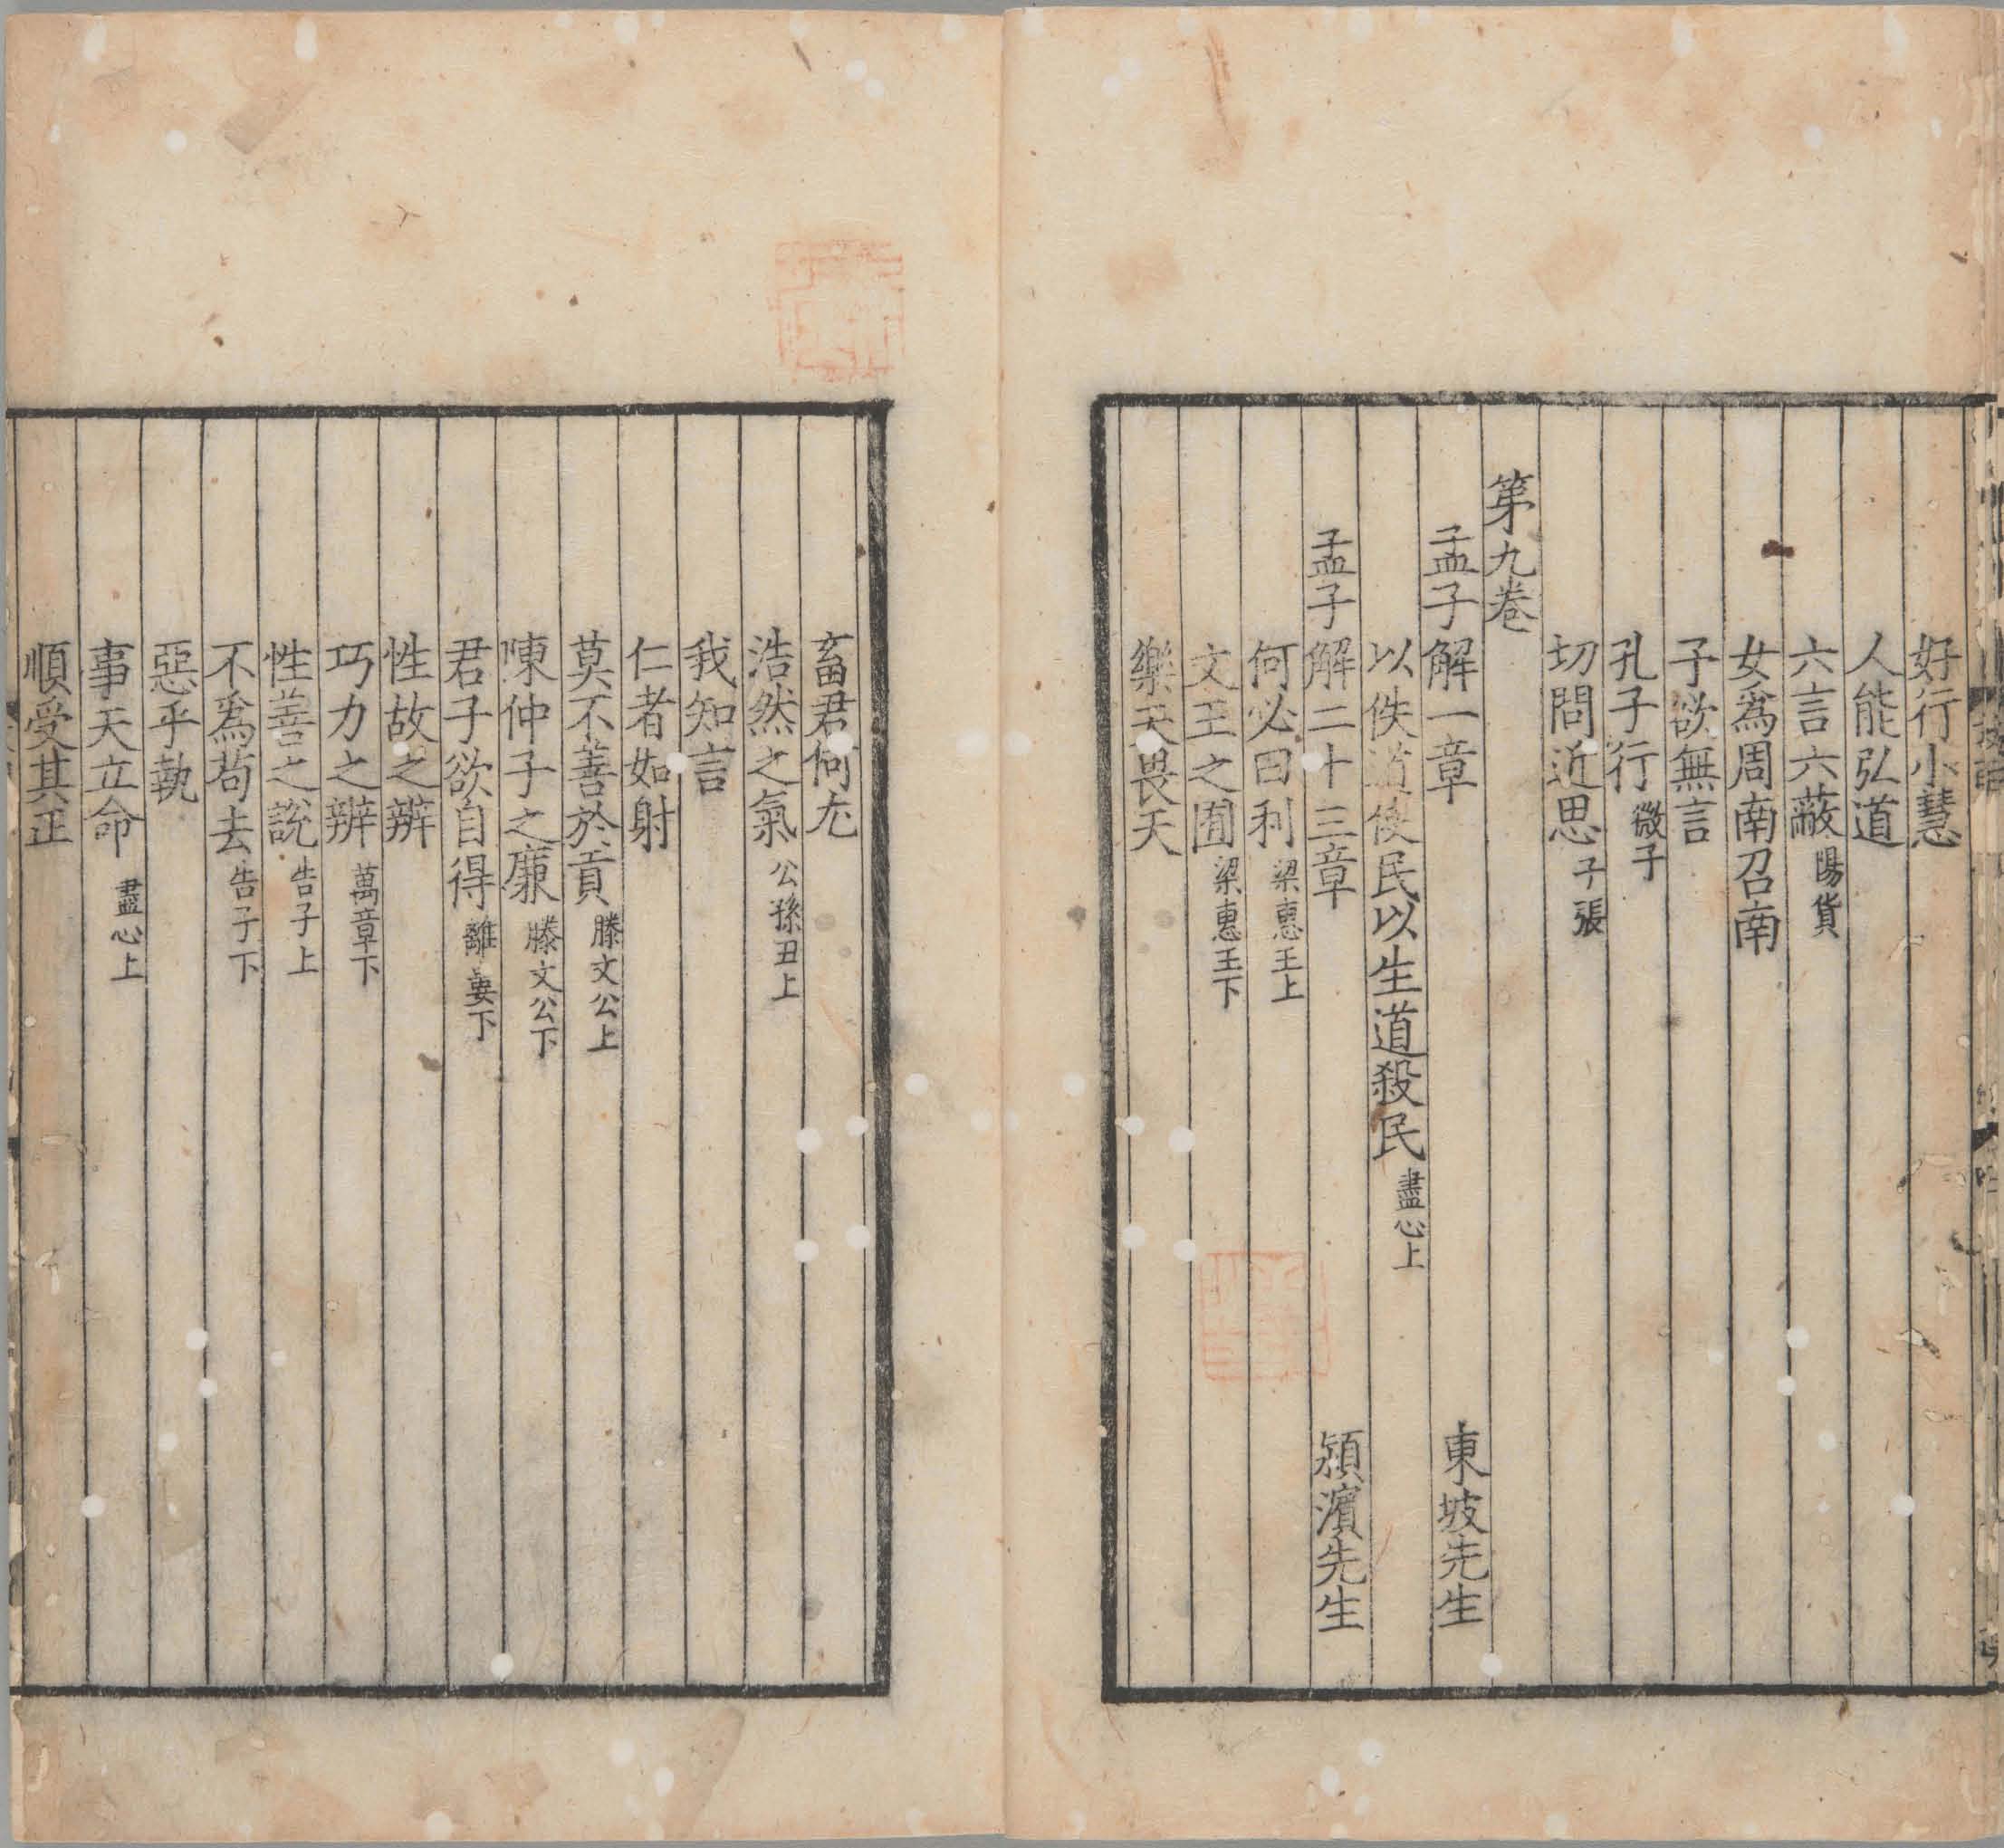 好行小慧
人能弘道
六言六蔽 陽貨
女爲周南召南
子欲無言
孔子行 微子
切問近思 子張
第九卷
孟子解一章 東坡先生
以佚道使民以生道殺民 盡心上
孟子解二十三章 潁濱先生
何必曰利 梁惠王上
文王之囿 梁惠王下
樂天畏天
畜君何尤
浩然之氣 公孫丑上
我知言
仁者如射
莫不善於貢 滕文公上
陳仲子之廉 滕文公下
君子欲自得 離婁下
性故之辨
巧力之辨 萬章下
性善之說 告子上
不爲苟去 告子下
惡乎執
事天立命 盡心上
順受其正